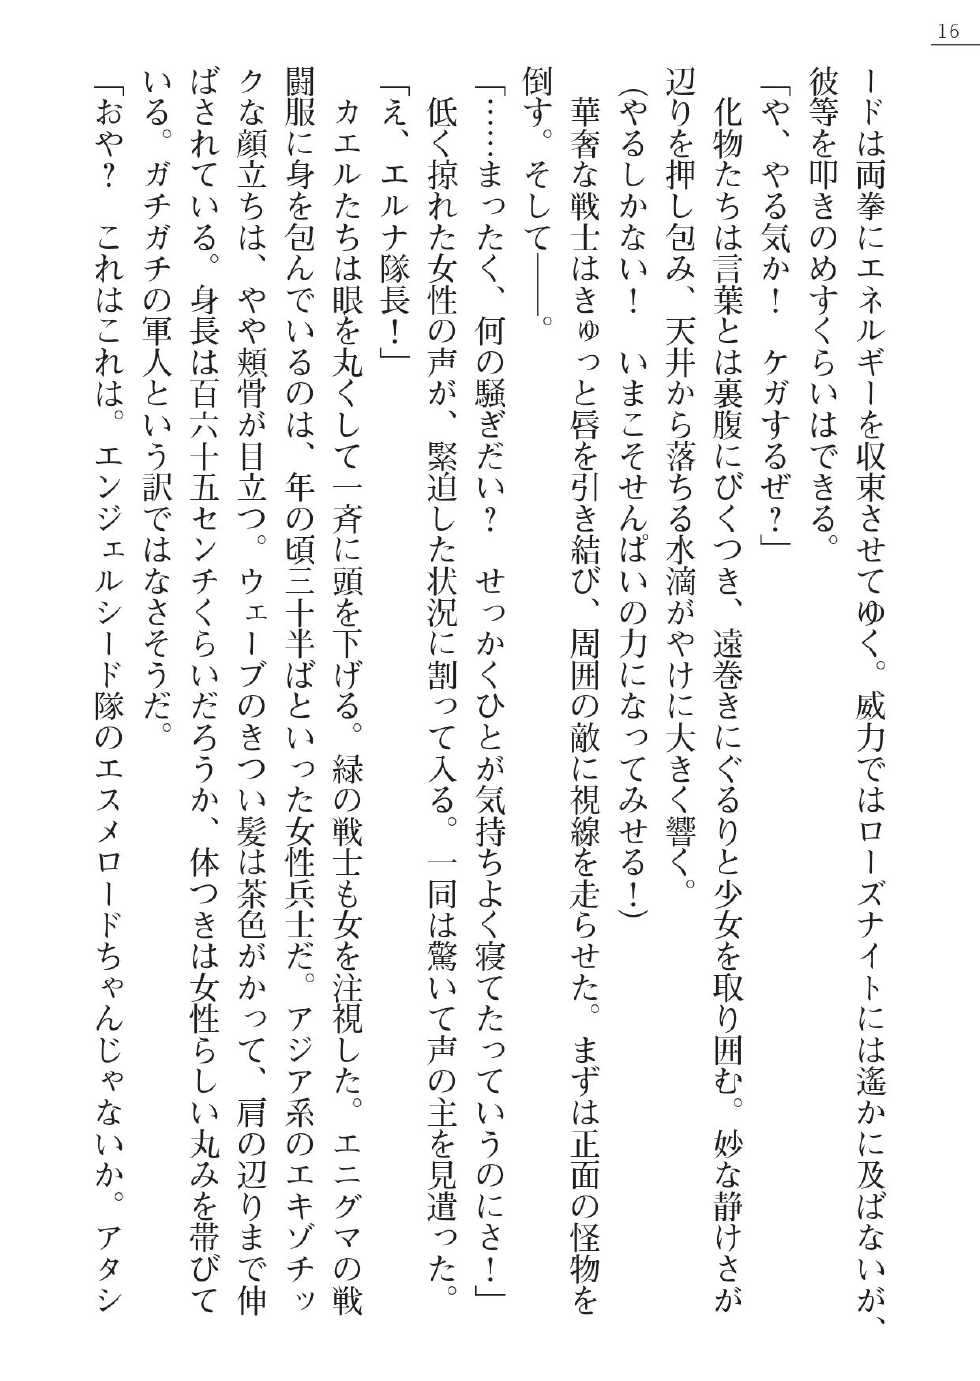 16
ードは両拳にエネルギーを収束させてゆく。威力ではローズナイトには遙かに及ばないが、
彼等を叩きのめすくらいはできる。
「や、やる気か！　ケガするぜ？」
　化物たちは言葉とは裏腹にびくつき、遠巻きにぐるりと少女を取り囲む。妙な静けさが
辺りを押し包み、天井から落ちる水滴がやけに大きく響く。
（やるしかない！　いまこそせんぱいの力になってみせる！）
　華奢な戦士はきゅっと唇を引き結び、周囲の敵に視線を走らせた。まずは正面の怪物を
倒す。そして――。
「……まったく、何の騒ぎだい？　せっかくひとが気持ちよく寝てたっていうのにさ！」
　低く掠れた女性の声が、緊迫した状況に割って入る。一同は驚いて声の主を見遣った。
「え、エルナ隊長！」
　カエルたちは眼を丸くして一斉に頭を下げる。緑の戦士も女を注視した。エニグマの戦
闘服に身を包んでいるのは、年の頃三十半ばといった女性兵士だ。アジア系のエキゾチッ
クな顔立ちは、やや頬骨が目立つ。ウェーブのきつい髪は茶色がかって、肩の辺りまで伸
ばされている。身長は百六十五センチくらいだろうか、体つきは女性らしい丸みを帯びて
いる。ガチガチの軍人という訳ではなさそうだ。
「おや？　これはこれは。エンジェルシード隊のエスメロードちゃんじゃないか。アタシ